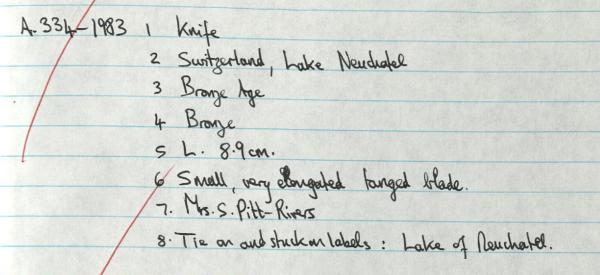 A.334-1983 1 Knife
2 Switzerland, Lake Neuchatel
3 Bronze Age
4 Bronze
5 L. 8.9cm.
6 Small, very elongated tanged blade.
7. Mrs. S. Pitt-Rivers
8. Tie on and stuck on labels: Lake of Neuchatel.